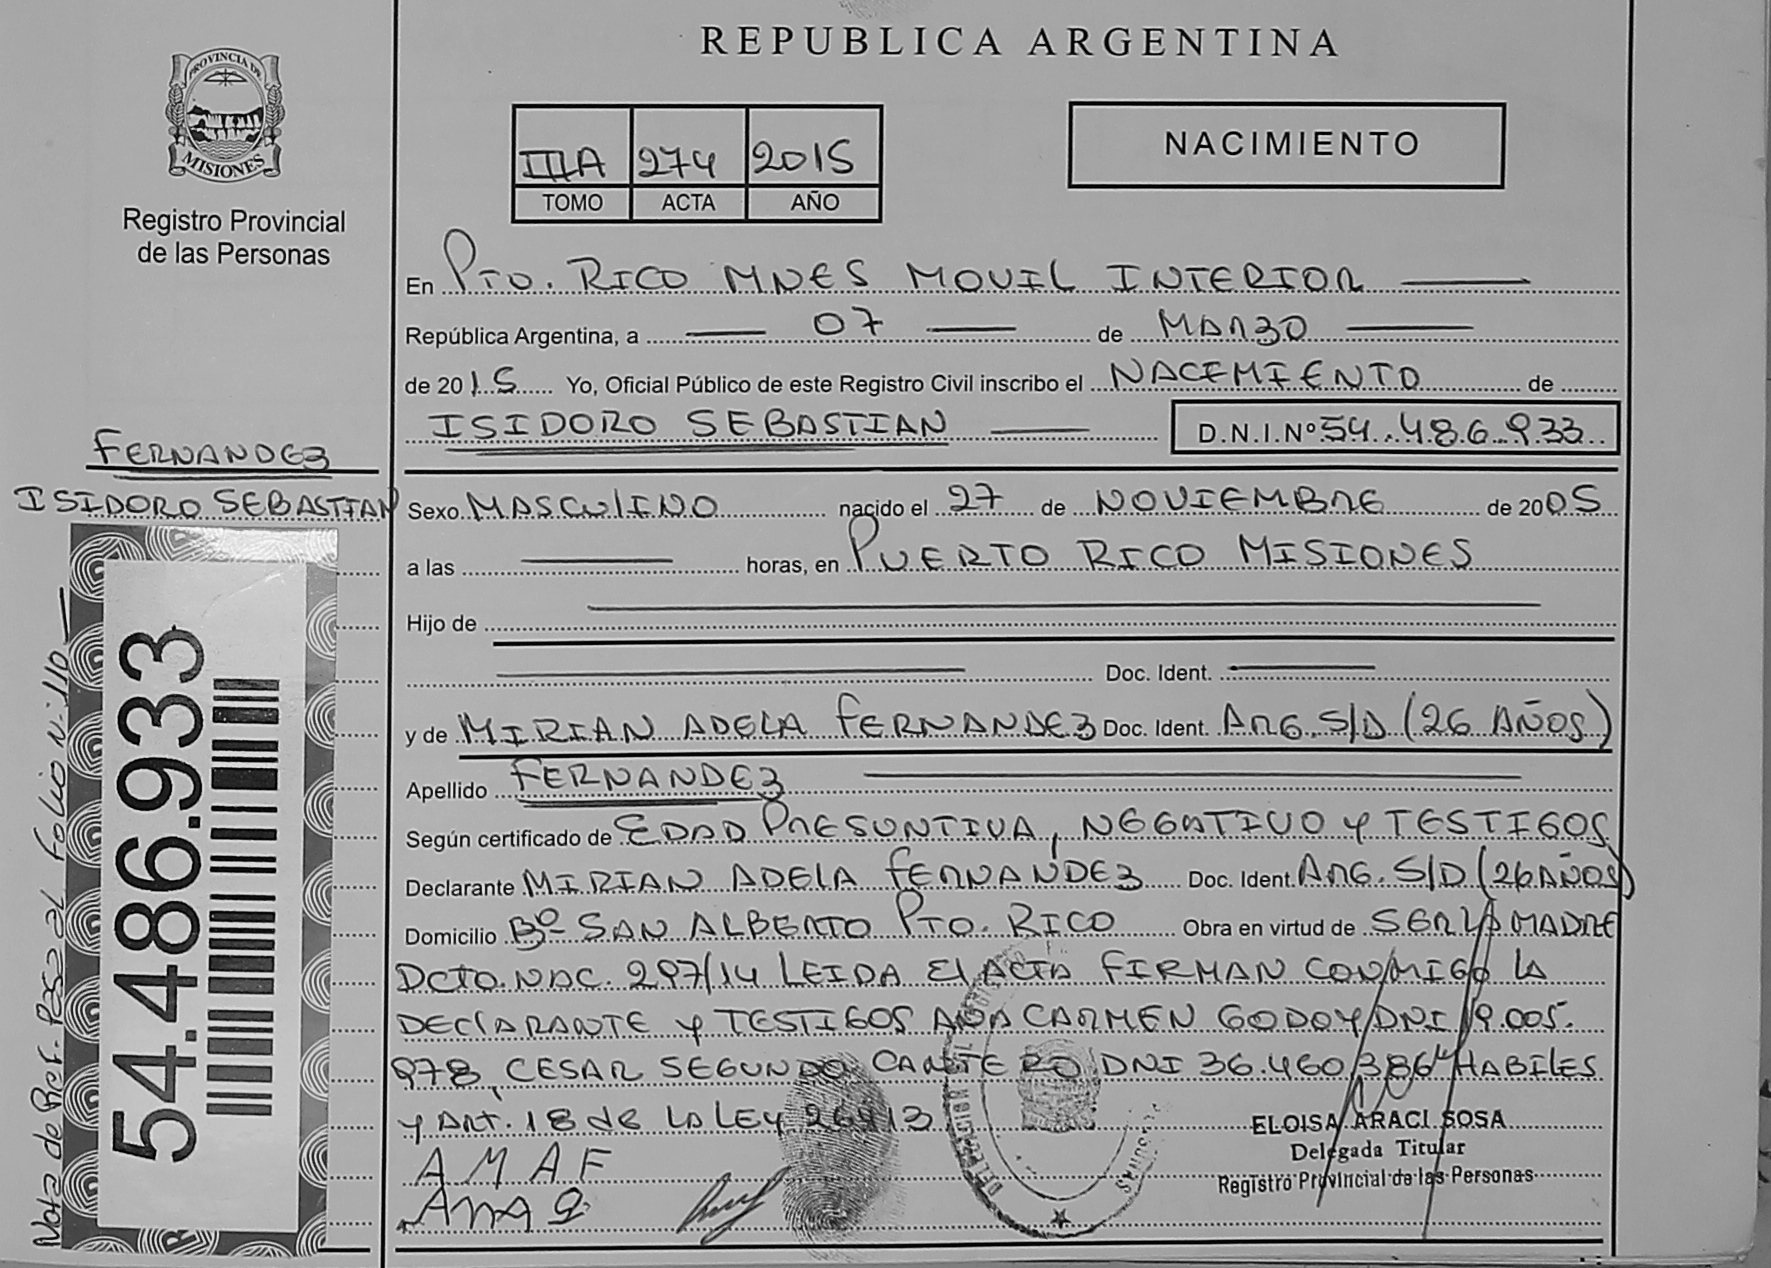 REPUBLICA ARGENTINA
PROVINCIA DE
MISIONES
Registro Provincial
de las Personas
IIIA 274 2015
TOMO ACTA AÑO
NACIMIENTO
En PTO. RICO MNES MOVIL INTERIOR
República Argentina, a 07 de MARZO
de 2015 Yo, Oficial Público de este Registro Civil inscribo el NACIMIENTO de
ISIDORO SEBASTIAN D.N.I.Nº 54.486.933
FERNANDEZ
ISIDORO SEBASTIAN
Sexo MASCULINO nacido el 27 de NOVIEMBRE de 2005
a las horas, en PUERTO RICO MISIONES
Hijo de
Doc. Ident.
y de MIRIAN ADELA FERNANDEZ Doc. Ident. ARG. S/D (26 AÑOS)
Apellido FERNANDEZ
Según certificado de EDAD PRESUNTIVA, NEGATIVO Y TESTIGOS
Declarante MIRIAN ADELA FERNANDEZ Doc. Ident. ARG. S/D (26 AÑOS)
Domicilio Bº SAN ALBERTO PTO. RICO Obra en virtud de SER LA MADRE
DCTO. NAC. 297/14 LEIDA El ACTA FIRMAN CONMIGO LA
DEClARANTE Y TESTIGOS ANA CARMEN GODOY DNI 19.005.
978, CESAR SEGUNDO CANTERO DNI 36.460.386 HABILES
Y ART. 18 de LA LEY 26413
ELOISA ARACI SOSA
Delegada Titular
Registro Provincial de las Personas
A M A F
54.486.933
Nota de Ref. Pasa al Folio Nº 110